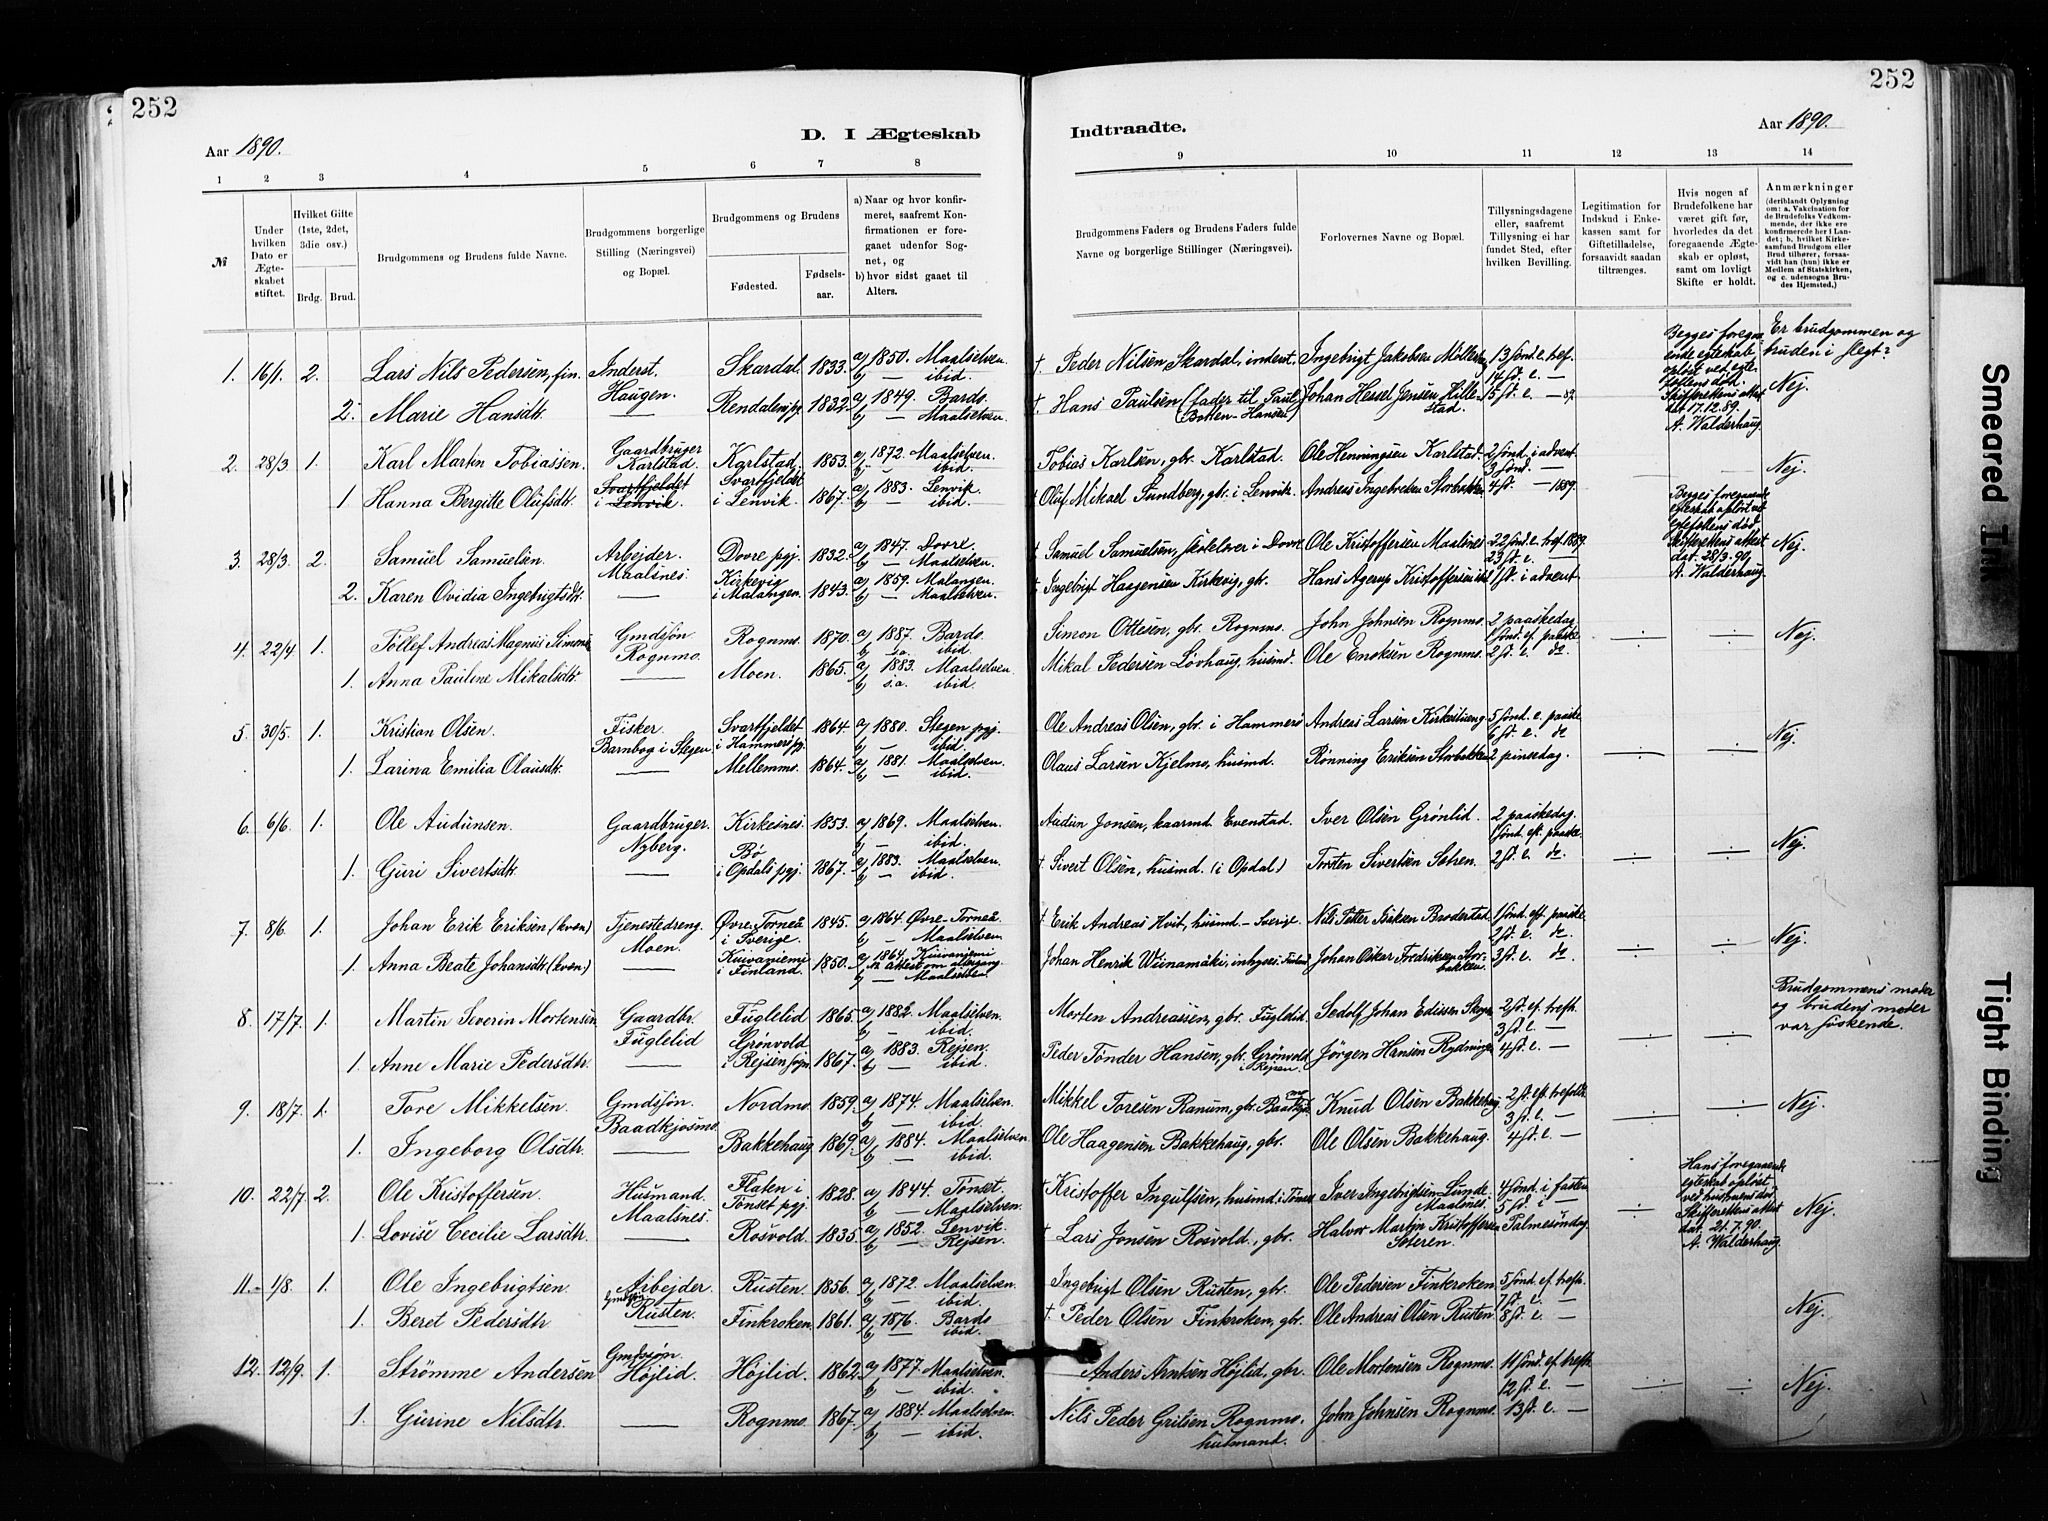 252
252
D. I Ægteskab Indtraadte.
Aar 1890.
Aar 1890.
1 2 3 4 5 6 7 8 9 10 11 12 13 14
№
Under hvilken Dato er Ægteskabet stiftet.
Hvilket Gifte (1ste, 2det, 3die osv.)
Brdg. Brud.
Brudgommens og Brudens fulde Navne.
Brudgommens borgerlige Stilling (Næringsvei) og Bopæl.
Brudgommens og Brudens
Fødested. Fødselsaar.
a) Naar og hvor konfirmeret, saafremt Konfirmationen er foregaaet udenfor Sognet, og b) hvor sidst gaaet til Alters.
Brudgommens Faders og Brudens Faders fulde Navne og borgerlige Stillinger (Næringsvei).
Forlovernes Navne og Bopæl.
Tillysningsdagene eller, saafremt Tillysning ei har fundet Sted, efter hvilken Bevilling.
Legitimation for Indskud i Enkekassen samt for Giftetilladelse, forsaavidt saadan tiltrænges.
Hvis nogen af Brudefolkene har været gift før, hvorledes da det foregaaende Ægteskab er opløst, samt om lovligt Skifte er holdt.
Anmærkninger (deriblandt Oplysning om: a. Vakcination for de Brudefolks Vedkommende, der ikke ere konfirmerede her i Landet; b. hvilket Kirkesamfund Brudgom eller Brud tilhører, forsaavidt han (hun) ikke er Medlem af Statskirken, og c. udensogns Brudes Hjemsted.)
1. 16/1. 2. Lars Nils Pedersen, fin. Inderst. Haugen. Skardal. 1833. a) 1850. Maalselven. b) — ibid. † Peder Nilsen Skardal, inderst. Ingebrigt Jakobsen 13 sønd. e. tref. 14 st. e. — Begges foregaaende egteskab opløst ved egtefellens død. Skifterettens attest dat. 17.12.89. A. Walderhaug Er brudgommen og bruden i slegt? Nej.
2. Marie Hansdtr. — Rendalens pgj. 1832. a) 1849. Bardo. b) — Maalselven. † Hans Paulsen (fader til Paul Botten-Hansen) Johan Hessel Jensen Hillestad. 15 st. e. — 89.
2. 28/3 1. Karl Martin Tobiassen. Gaardbruger Karlstad. Karlstad. 1853. a) 1872. Maalselven. b) — ibid. Tobias Karlsen, gbr. Karlstad. Ole Henningsen Karlstad. 2 sønd. i advent 3 sønd. — Nej.
1 Hanna Bergitte Olufsdtr. Svartfjeldet i Lenvik. Svartfjeldet i Lenvik. 1867. a) 1883. Lenvik. b) — ibid. † Oluf Mikael Sundberg, gbr. i Lenvik. Andreas Ingebretsen Storbakken 4 st. — 1889.
3. 28/3. 2. Samuel Samuelsen. Arbejder. Maalsnes. Dovre pgj. 1832. a) 1847. Dovre b) — Maalselven. † Samuel Samuelsen, skolelærer i Dovre Ole Kristoffersen Maalsnes 22 sønd. e. tref. 1889. 23 st. e. — Begges foregaaende egteskab opløst ved egtefellens død Skifterettens attest dat. 28/3.90, A. Walderhaug. Nej.
2. Karen Ovidia Ingebrigtsdtr. — Kirkevig i Malangen. 1843. a) 1859. Malangen. b) — Maalselven. † Ingebrigt Haagensen Kirkevig, gbr. Hans Agerup Kristoffersen 1 st. i advent
4. 22/4 1. Tollef Andreas Magnus Simonsen Gmdssøn. Rognmo. Rognmo. 1870. a) 1887. Bardo. b) s.a. ibid Simon Ottesen, gbr. Rognmo. John Johnsen Rognmo. 2 paaskedag 1 sønd. ef. paaske Nej.
1. Anna Pauline Mikalsdtr. — Moen. 1865. a) 1883. Maalselven b) s.a. ibid. Mikal Pedersen Løvhaug, husmd. Ole Enoksen Rognmo. 2 st. e. do.
5. 30/5. 1. Kristian Olsen. Fisker Barnbog i Stegen Svartfjeldet i Hammerø pgj. 1864. a) 1880. Stegen pgj. b) — ibid. Ole Andreas Olsen, gbr. i Hammerø Andreas Larsen Kirkestueng 5 sønd. e. paaske 6 st. e. do Nej.
1. Larina Emilia Olausdtr. — Mellemmo. 1864. a) 1881. Maalselven b) — ibid. Olaus Larsen Kjelmo, husmd. Rønning Eriksen Storbakken 2 pinsedag.
6. 6/6. 1. Ole Audunsen. Gaardbruger. Nyberg. Kirkesnes. 1853. a) 1869. Maalselven. b) — ibid. Audun Jonsen, kaarmd. Evenstad. Iver Olsen Grønlid. 2 paaskedag. 1 sønd. eft. paaske. Nej.
1. Guri Sivertsdtr. — Bø i Opdals pgj. 1867. a) 1883. Maalselven b) — ibid. † Sivert Olsen, husmd. (i Opdal) Torsten Sivertsen Sætren. 2 st. e. do.
7. 8/6. 1. Johan Erik Eriksen (kvæn) Tjenestedreng. Moen. Øvre-Torneå i Sverige. 1845. a) 1864. Øvre-Torneå b) — Maalselven † Erik Andreas Hvit, husmd. — Sverige. Nils Petter Eriksen Brodestad. 1 sønd. eft. paaske. 2 st. e. do. Nej.
1. Anna Beate Johansdtr. (kvæn.) — Kuivaniemi i Finland. 1850. a) 1864. Kuivaniemi attest om altergang b) — Maalselven. Johan Henrik Wiinamäki, Finland Johan Oskar Fredriksen Storbakken. 3 st. e. do
8. 17/7. 1. Martin Severin Mortensen. Gaardbr. Fuglelid Fuglelid 1865. a) 1882. Maalselven. b) — ibid. Morten Andreassen, gbr. Fuglelid. Sedolf Johan Edissen 2 st. ef. trefh. 3 st. e. — Brudgommens moder og brudens moder var søskende.
1. Anne Marie Pedersdtr. — Grønvold i Rejsen sogn. 1867. a) 1883. Rejsen. b) — ibid. Peder Tønder Hansen, gbr. Grønvold i Rejsen. Jørgen Hansen Rydningen 4 st. e. —
9. 18/7. 1. Tore Mikkelsen. Gmdssøn. Baadkjosmo. Nordmo. 1859. a) 1874. Maalselven. b) — ibid. Mikkel Toresen Ranum, gbr. Knud Olsen Bakkehaug 2 st. ef. trefoldh. 3 st. e. — Nej.
1. Ingeborg Olsdtr. — Bakkehaug 1869. a) 1884. Maalselven b) — ibid. Ole Haagensen Bakkehaug, gbr. Ole Olsen Bakkehaug. 4 st. e. —
10. 22/7. 2. Ole Kristoffersen. Husmand. Maalsnes. Flaten i Tønset pgj. 1828. a) 1844. Tønset. b) — Maalselven † Kristoffer Ingulfsen, husmd. i Tønset Iver Ingebrigtsen Lunde. Maalsnes. 4 sønd. i fasten 5 st. i — Hans foregaaende egteskab opløst ved hustruens død. Skifterettens attest dat. 21.7.90. A. Walderhaug. Nej.
1. Lovise Cecilie Larsdtr. — Rosvold. 1835. a) 1852. Lenvik. b) — Rejsen. † Lars Jonsen Rosvold., gbr. Halvor Martin Kristoffersen Sæteren. Palmesøndag
11. 1/8. 1. Ole Ingebrigtsen Arbejder Gmdssøn Rusten Rusten. 1856. a) 1872. Maalselven. b) — ibid. Ingebrigt Olsen Rusten, gbr. Ole Pedersen Finkroken. 5 sønd. ef. trefh. 7 st. e. — Nej.
1. Beret Pedersdtr — Finkroken. 1861. a) 1876. Bardo b) — ibid. † Peder Olsen Finkroken, gbr. Ole Andreas Olsen Rusten 8 st. e. —
12. 12/9. 1. Strømme Andersen Gmdssøn. Højlid. Højlid. 1862. a) 1877. Maalselven. b) — ibid. Anders Arntsen Højlid, gbr. Ole Mortensen Rognmo. 11 sønd. ef. trefh. 12 st. e. — Nej.
1. Gurine Nilsdtr. — Rognmo. 1867. a) 1884. Maalselven. b) — ibid. Nils Peder Rognmo. husmand. John Johnsen Rognmo. 13 st. e. —
Smeared Ink
Tight Binding